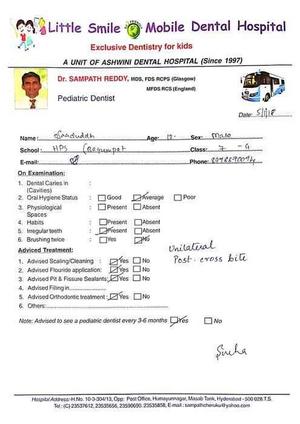 Little Smile Mobile Dental Hospital
Exclusive Dentistry for kids
A UNIT OF ASHWINI DENTAL HOSPITAL (Since 1997)
Dr. SAMPATH REDDY, MDS, FDS RCPS (Glasgow)
MFDS RCS (England)
Pediatric Dentist
Date:
Name: Age: Sex: Male
School: HPS Class: 7 - G
E-mail: Phone:
On Examination:
1. Dental Caries in (Cavities) :
2. Oral Hygiene Status : Good Average Poor
3. Physiological Spaces : Present Absent
4. Habits : Present Absent
5. Irregular teeth : Present Absent
6. Brushing twice : Yes No
Unilateral
Post. cross bite
Advised Treatment:
1. Advised Scaling/Cleaning : Yes No
2. Advised Flouride application: Yes No
3. Advised Pit & Fissure Sealants: Yes No
4. Advised Filling in
5. Advised Orthodontic treatment : Yes No
6. Others:
Note: Advised to see a pediatric dentist every 3-6 months Yes No
Hospital Address: H.No. 10-3-304/13, Opp: Post Office, Humayunnagar, Masab Tank, Hyderabad - 500 028 T.S.
Tel: (C) 23537612, 23535656, 23590693, 23535858, E-mail : sampathcheruku@yahoo.com